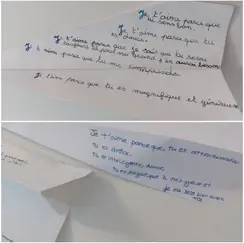 Je t'aime parce que
tu sens bon.
Je t'aime parce que tu
es douce.
Je t'aime parce que je sais que tu seras
toujours là pour ma
Je t'aime parce que tu me comprends
Je t'aime parce que tu es magnifique et généreuse
Je t'aime parce que tu es attentionnée
Tu es drôle.
Tu es intelligente,
Tu es magnifique à mes yeux et
je me sens bien avec
toi